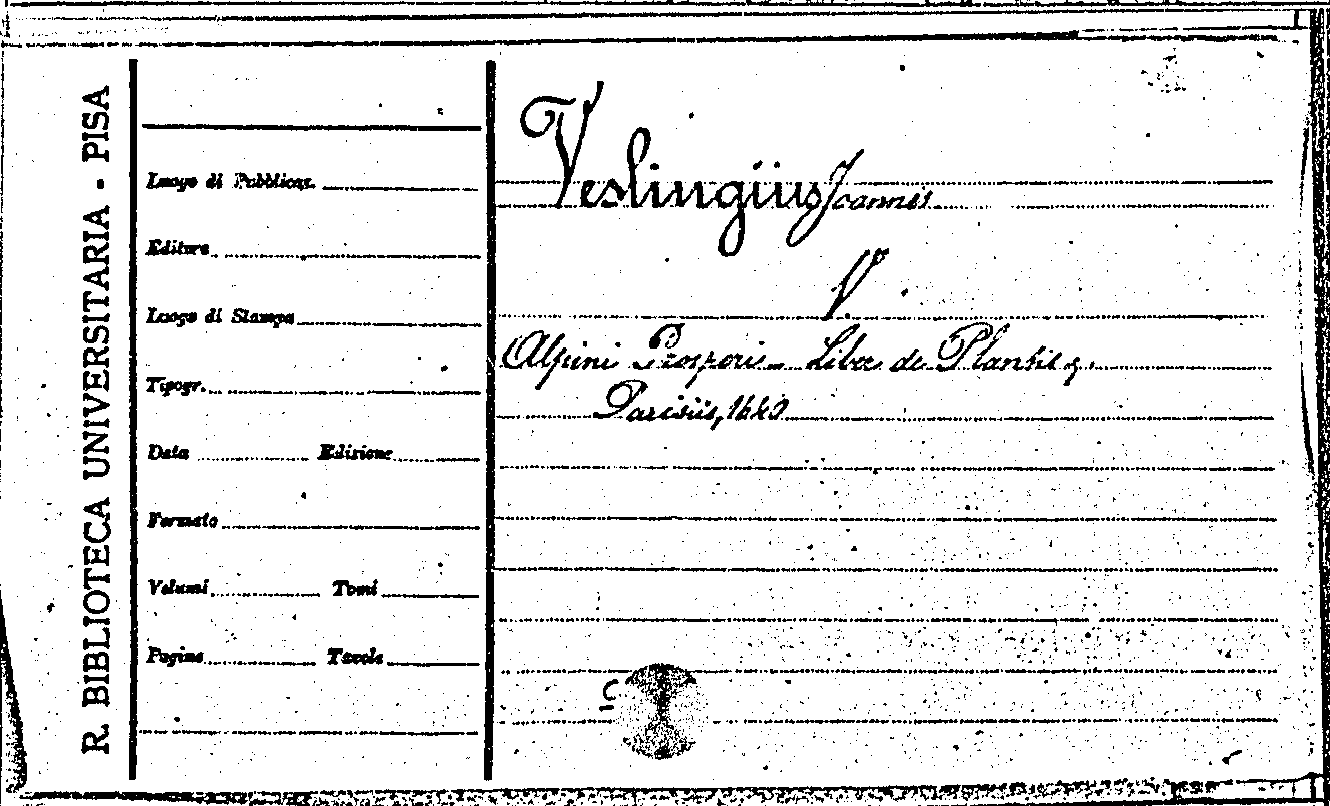 R. BIBLIOTECA UNIVERSITARIA - PISA
Luogo di Pubblicaz.
Editore
Luogo di Stampa
Tipogr.
Data Edizione
Formato
Volumi Tomi
Pagine Tavole
Veslingius Joannes
V.
Alpini Prosperi - Liber de Plantis
Parisiis, 1640